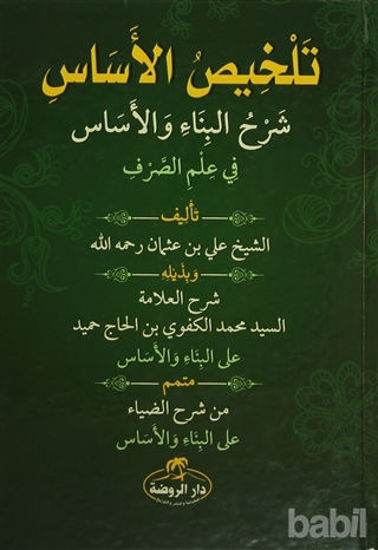 تَلْخِيصُ الأَسَاسِ
شَرْحُ البِنَاءِ وَالأَسَاس
فِي عِلْمِ الصَّرْفِ
تأليف
الشيخ علي بن عثمان رحمه الله
وَبِذَيْلِهِ
شرح العلامة
السيد محمد الكفوي بن الحاج حميد
على البِنَاءِ وَالأَسَاسِ
متمم
من شرح الضياء
على البِنَاءِ وَالأَسَاسِ
دار الروضة
babil